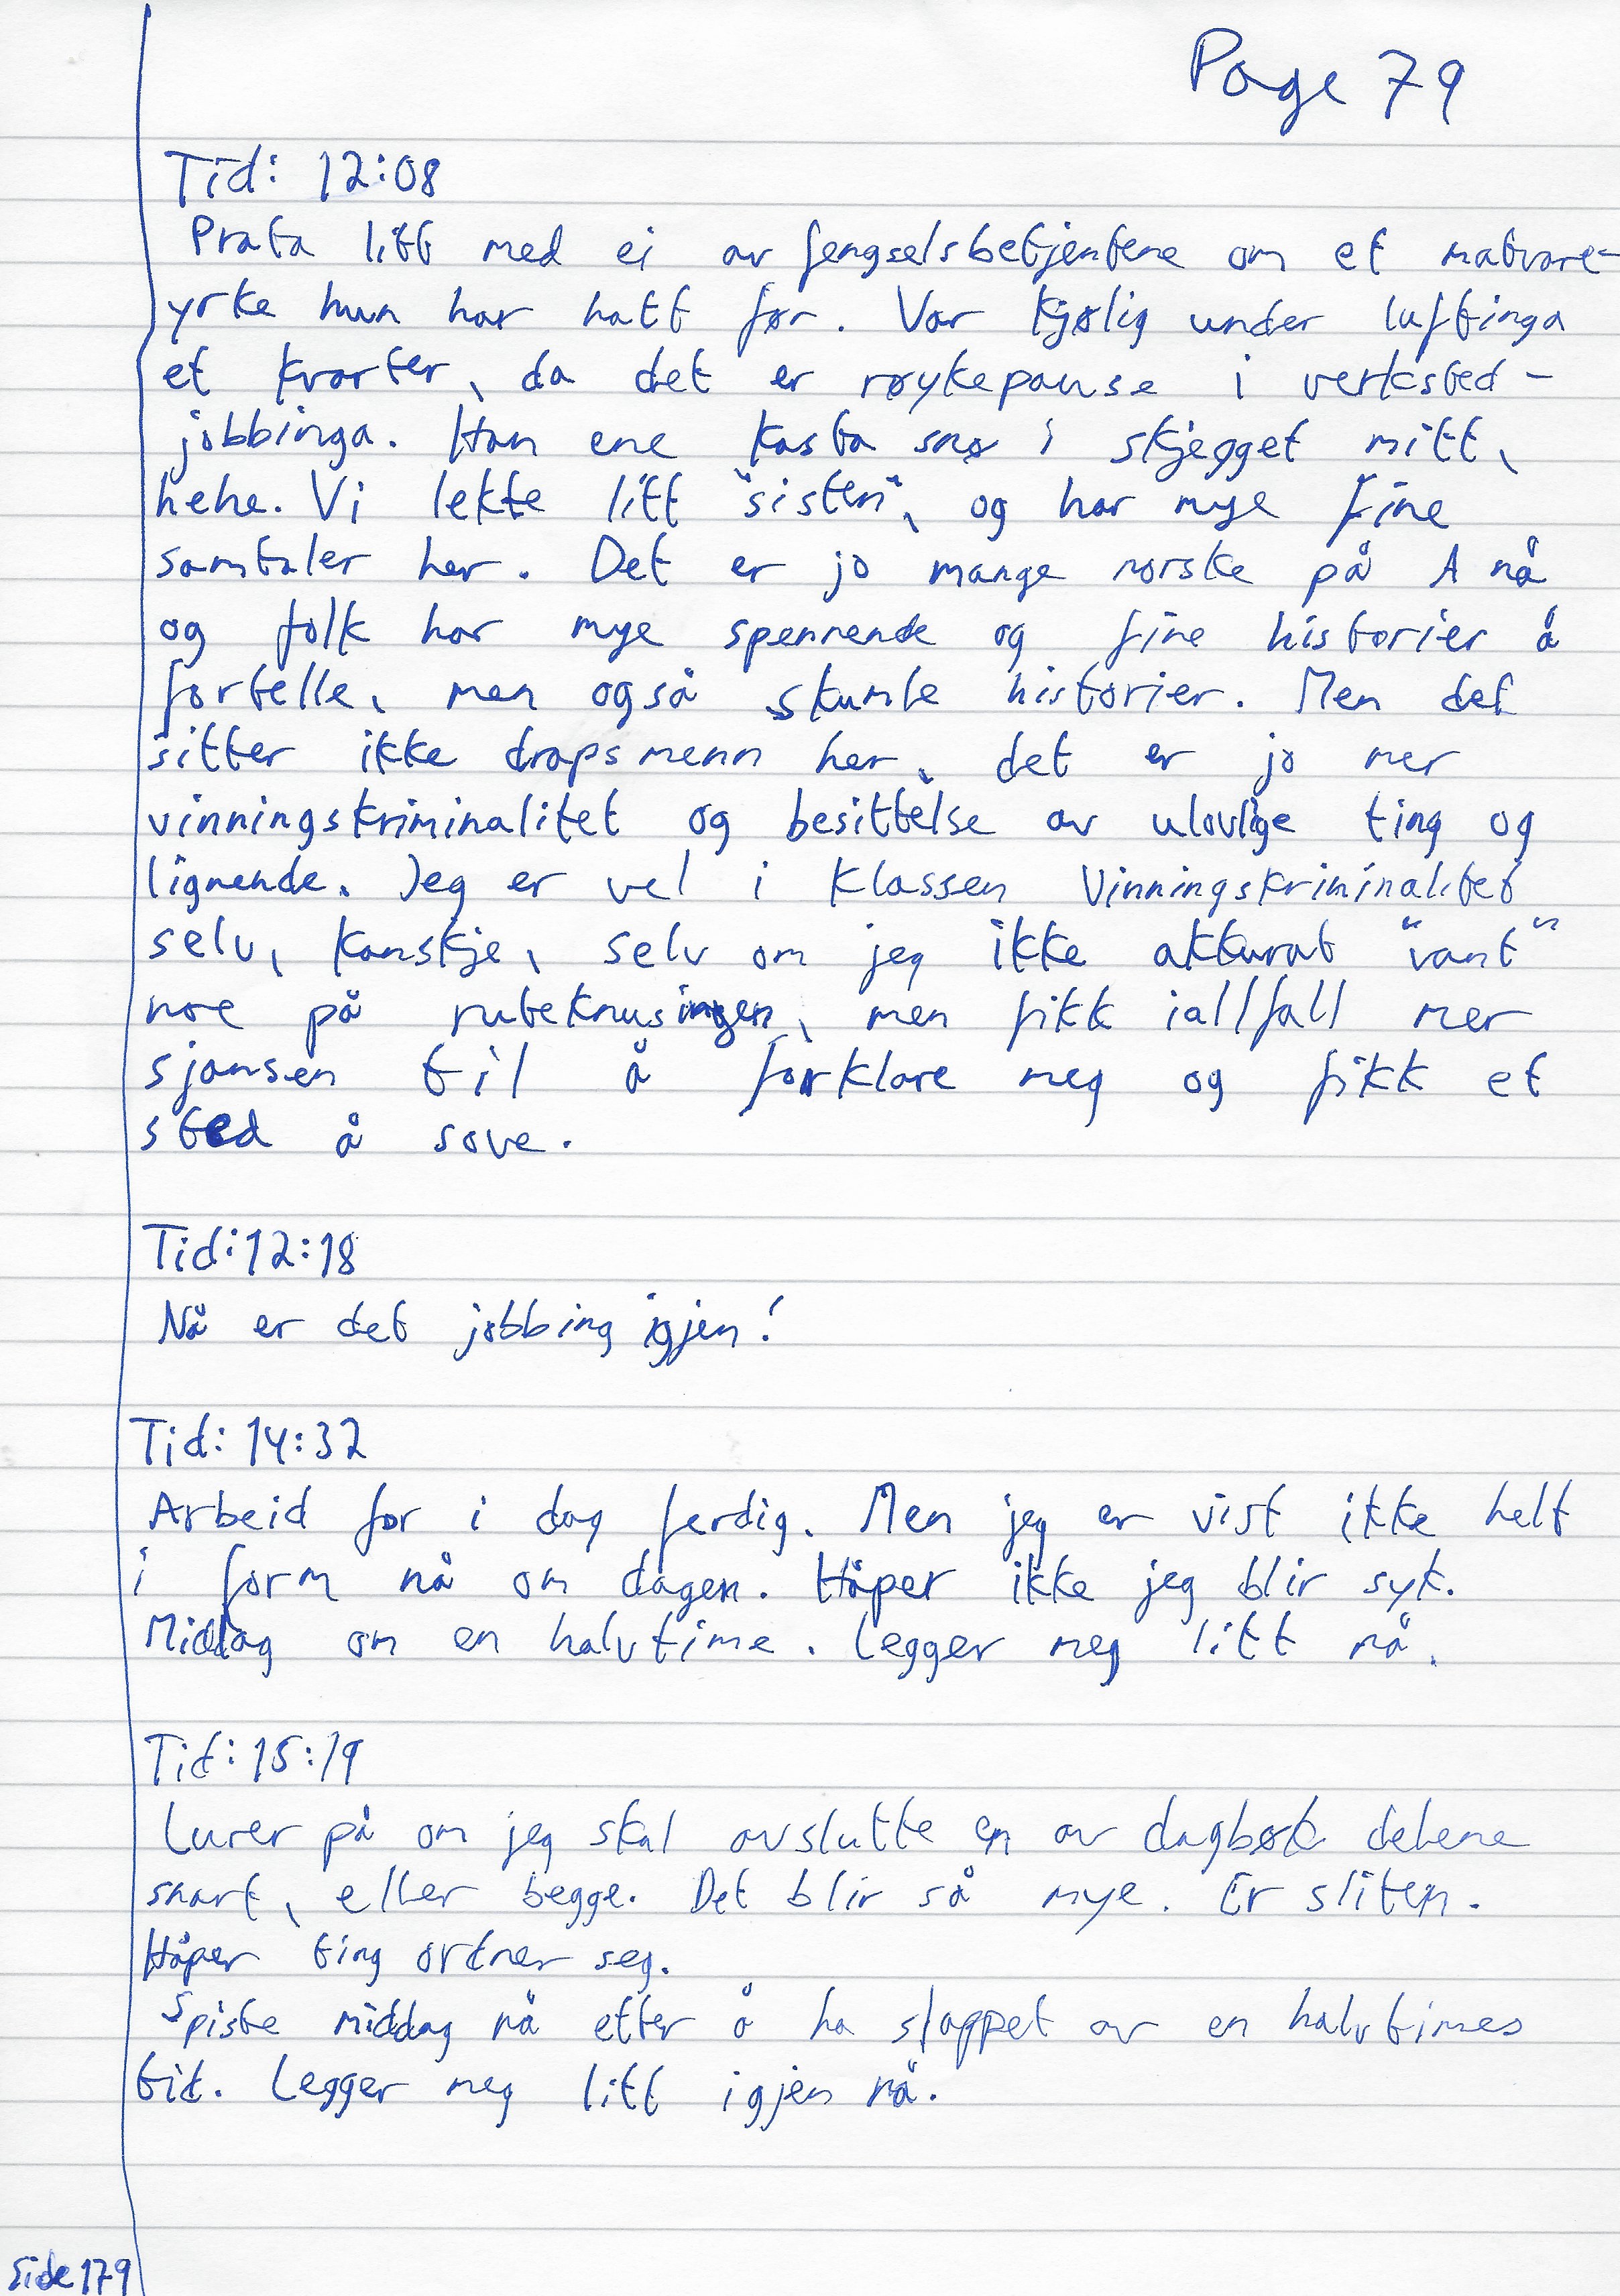 Page 79
Tid: 12:08
Prata litt med ei av fengselsbetjentene om et matvare-
yrke hun har hatt før. Var kjølig under luftinga
et kvarter, da det er røykepause i verksted-
jobbinga. Han ene kasta snø i skjegget mitt,
hehe. Vi lekte litt "sisten", og har mye fine
samtaler her. Det er jo mange norske på A nå
og folk har mye spennende og fine historier å
fortelle, men også skumle historier. Men det
sitter ikke drapsmenn her, det er jo mer
vinningskriminalitet og besittelse av ulovlige ting og
lignende. Jeg er vel i klassen Vinningskriminalitet
selv, kanskje, selv om jeg ikke akkurat "vant"
noe på ruteknusingen, men fikk iallfall mer
sjansen til å forklare meg og fikk et
sted å sove.
Tid: 12:18
Nå er det jobbing igjen!
Tid: 14:32
Arbeid for i dag ferdig. Men jeg er vist ikke helt
i form nå om dagen. Håper ikke jeg blir syk.
Middag om en halvtime. Legger meg litt nå.
Tid: 15:19
Lurer på om jeg skal avslutte en av dagbok delene
snart, eller begge. Det blir så mye. Er sliten.
Håper ting ordner seg.
Spiste middag nå etter å ha slappet av en halvtimes
tid. Legger meg litt igjen nå.
Side 179